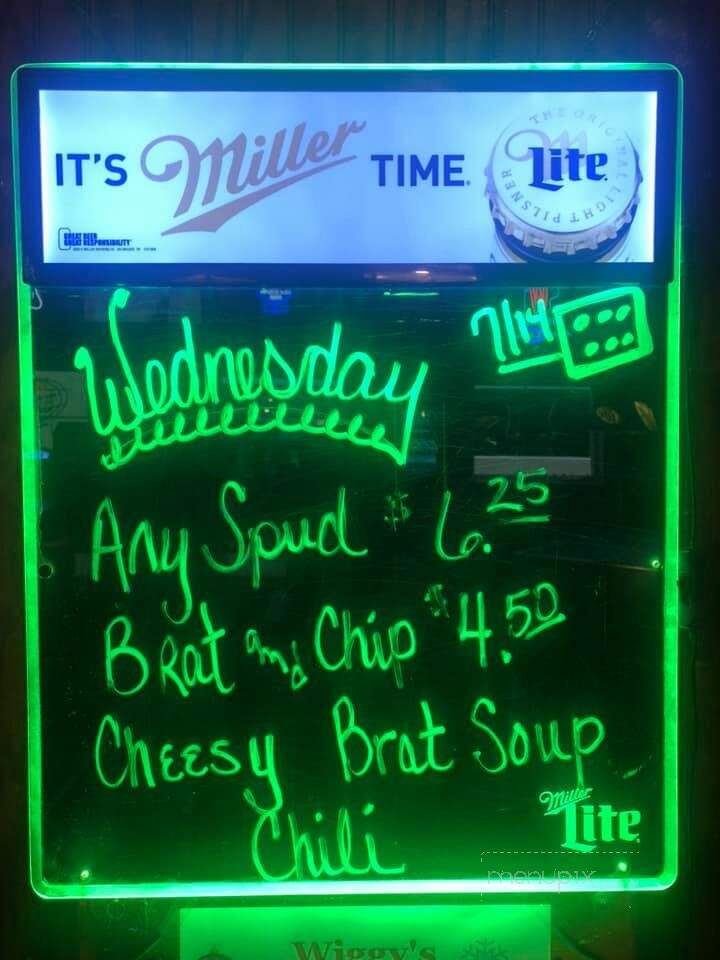 IT'S Miller TIME.
THE ORIGINAL LIGHT PILSNER
Lite
GREAT BEER
GREAT RESPONSIBILITY
Wednesday
7/14
Any Spud $6.25
Brat and Chip $4.50
Cheesy Brat Soup
Chili
Miller
Lite
menupix
Wiggy's